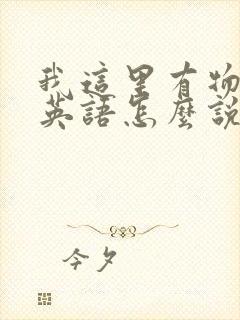 我這里有物
英語怎麼說
今夕